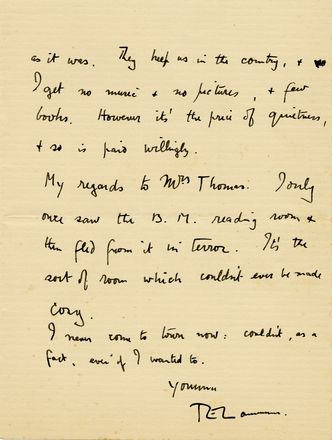 as it was. They keep us in the country, &
I get no music & no pictures, & few
books. However it's the price of quietness,
& so is paid willingly.
My regards to Mrs Thomas. I only
once saw the B.M. reading room &
then fled from it in terror. It's the
sort of room which couldn't ever be made
cosy.
I never come to town now: couldn't, as a
fact, even if I wanted to.
Yours
T E L